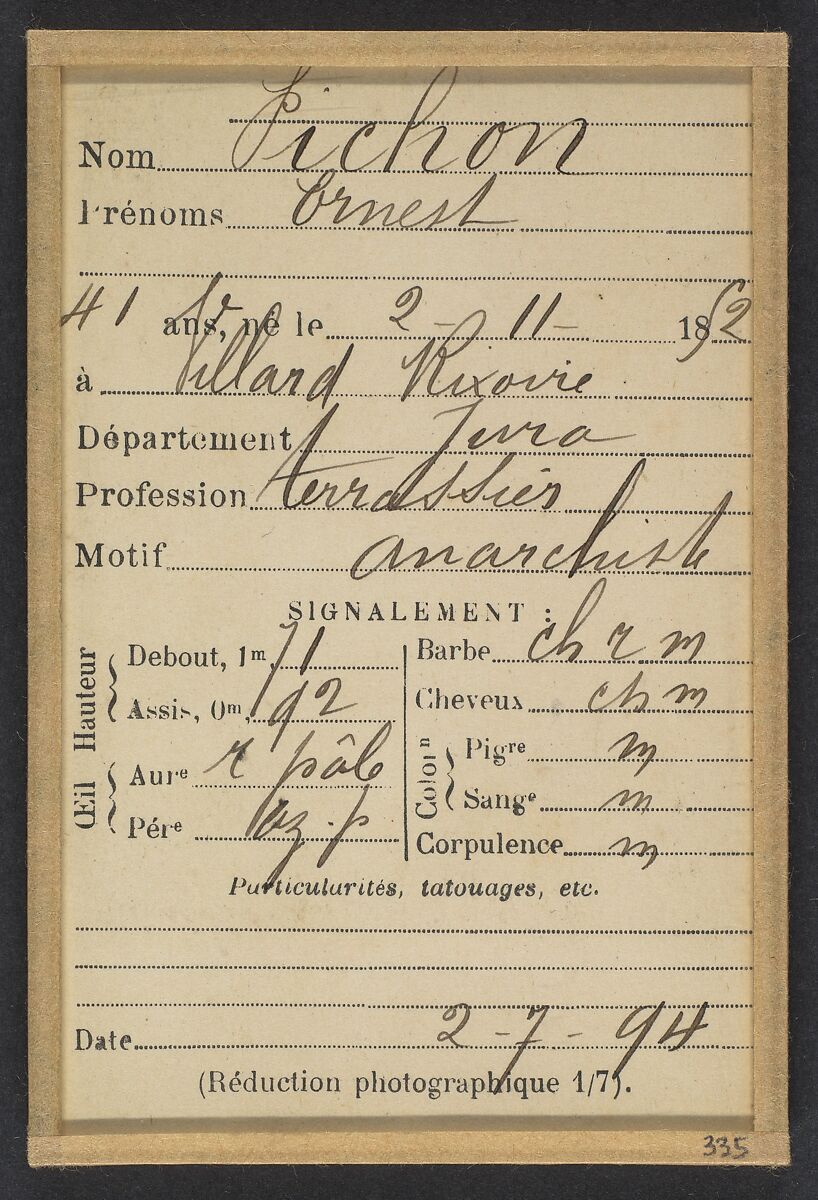 Nom Pichon
Prénoms Ernest
41 ans, né le 2-11-1852
à Villard Rixovie
Département Jura
Profession terrassier
Motif anarchiste
SIGNALEMENT :
Hauteur
Debout, 1m, 71
Assis, 0m, 92
Œil
Aure r pâle
Pére az. p
Barbe ch r m
Cheveux ch m
Colon
Pigre m
Sange m
Corpulence m
Particularités, tatouages, etc.
Date 2-7-94
(Réduction photographique 1/7).
335